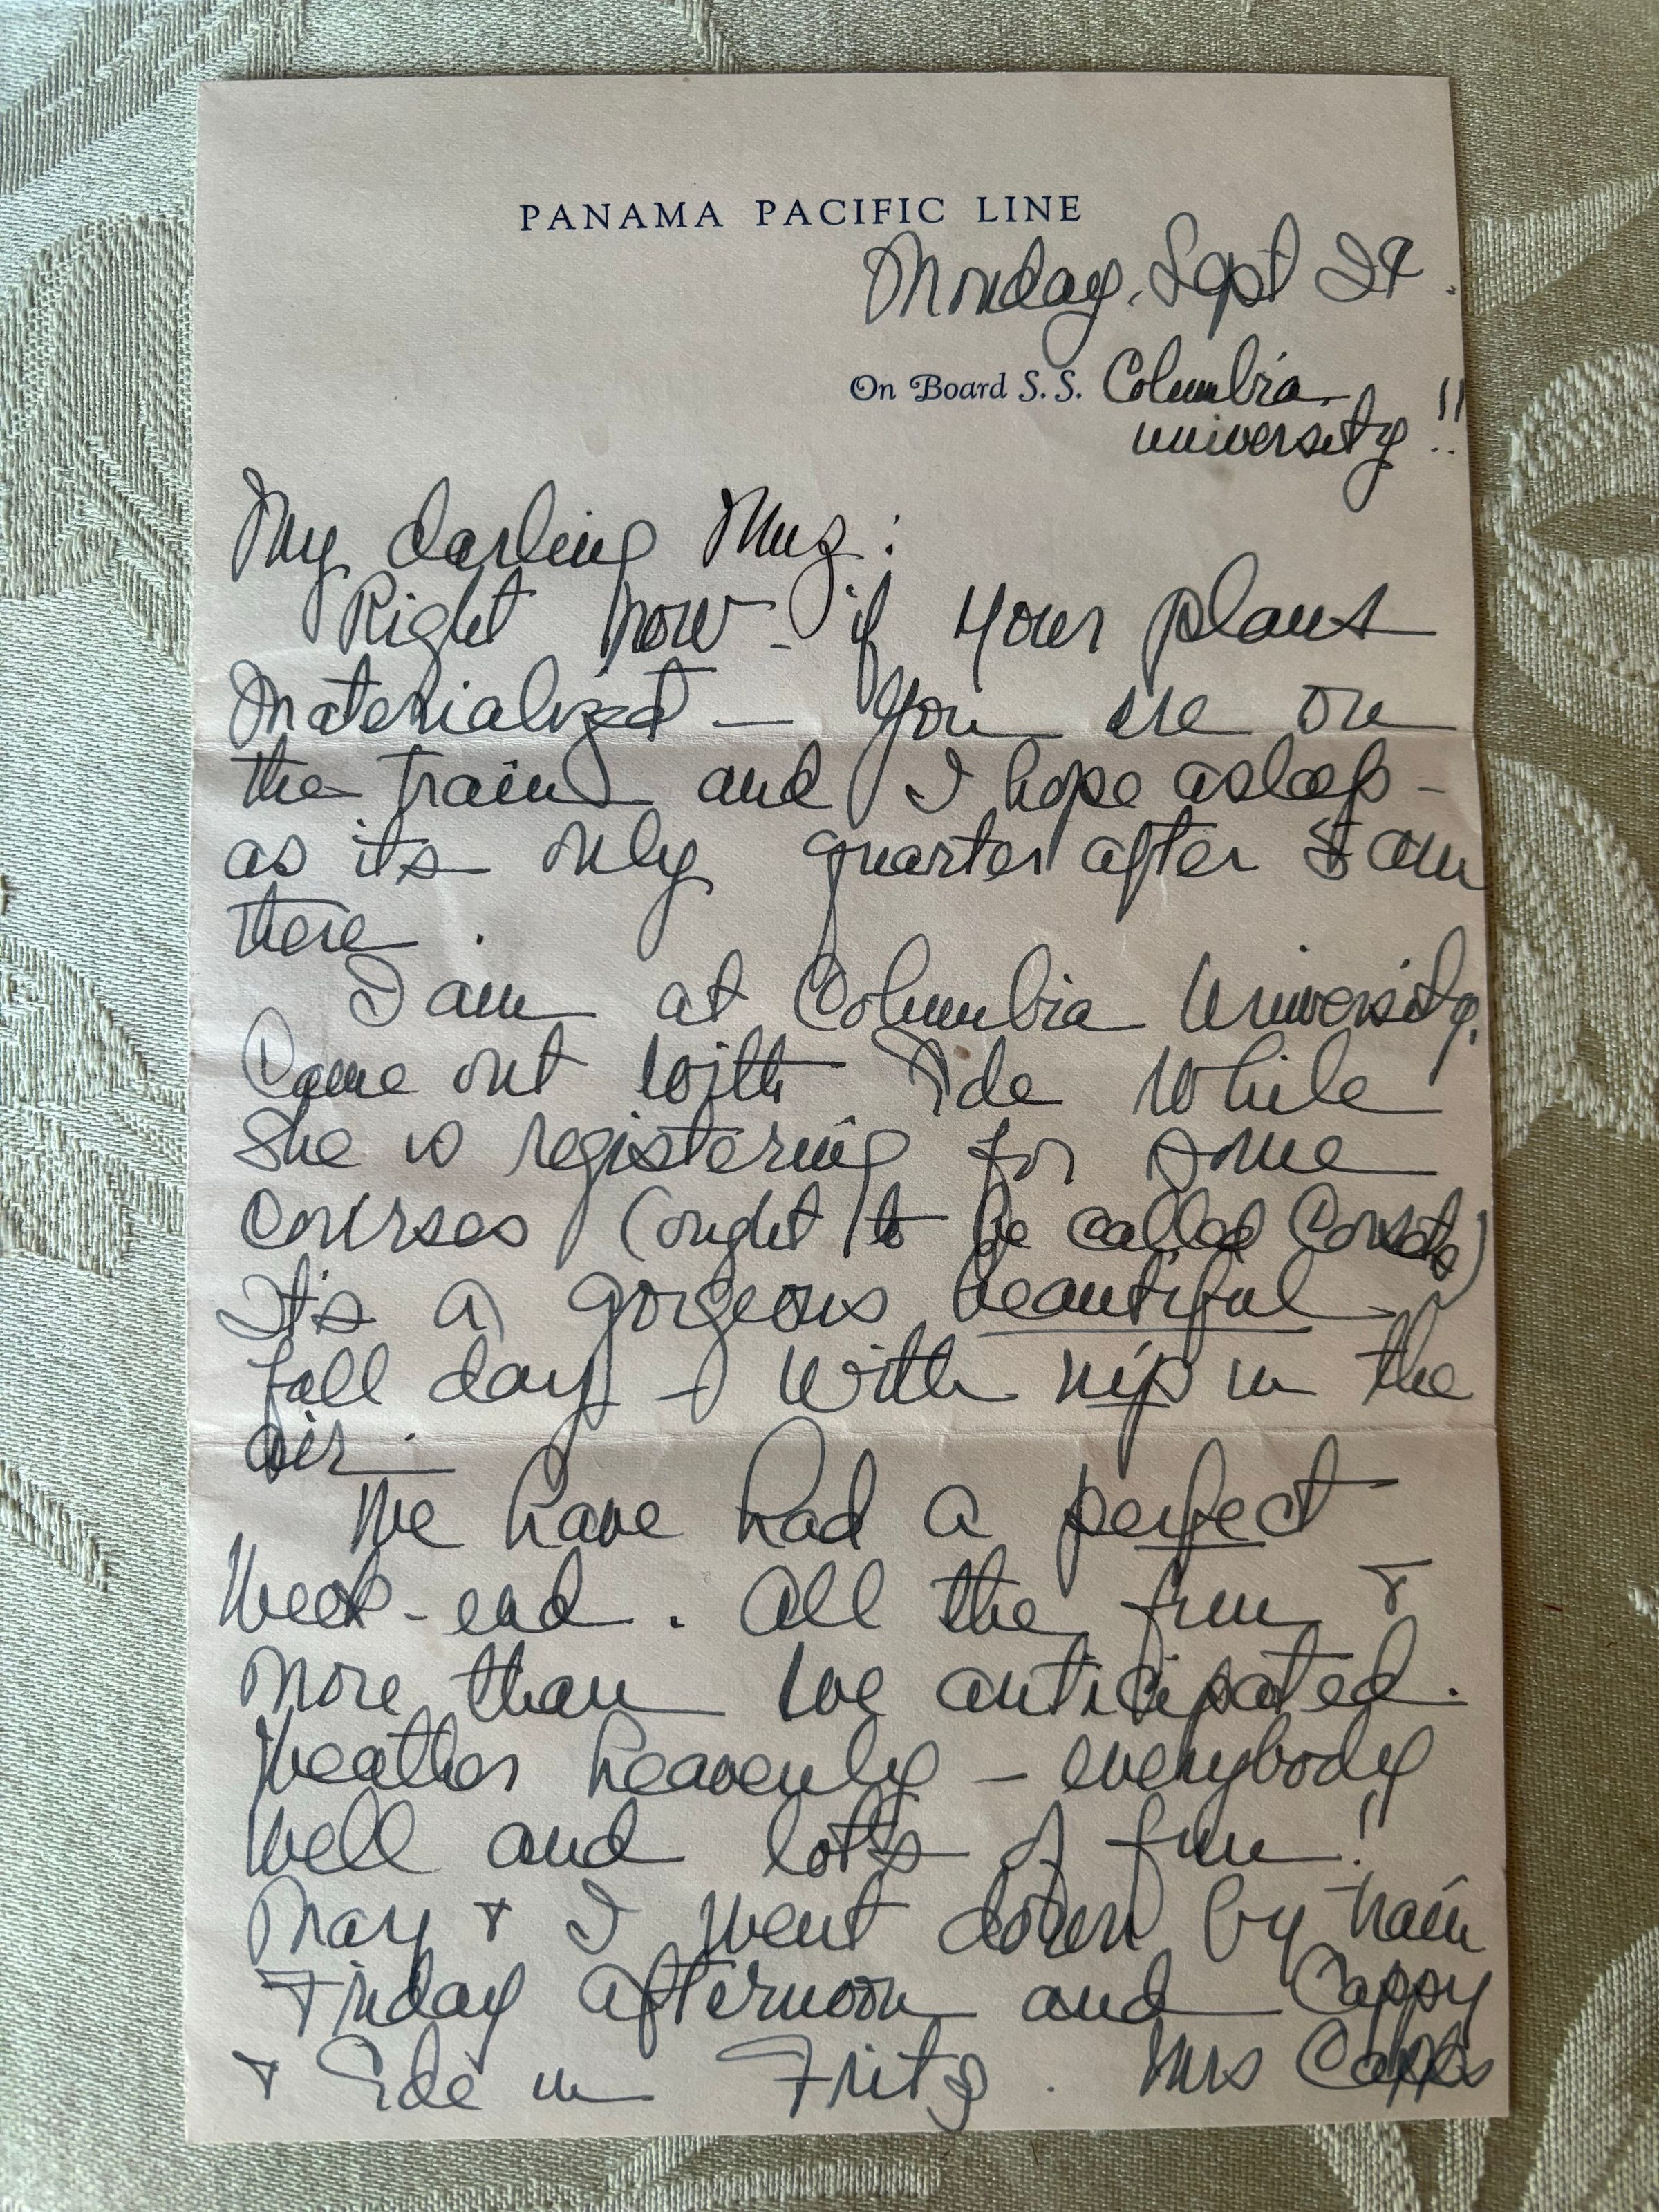 PANAMA PACIFIC LINE
Monday, Sept 24.
On Board S.S. Columbia
University!!
My darling Muz:
Right now - if your plans
materialized — you are on
the train and I hope asleep -
as its only quarter after 8 am
there.
I am at Columbia University.
Came out with Ede while
she is registering for some
courses (ought to be called Corsets)
It's a gorgeous beautiful
fall day - with nip in the
air.
We have had a perfect
week-end. All the fun &
more than we anticipated.
Weather heavenly - everybody
well and lots of fun!
May & I went down by train
Friday afternoon and Cappy
& Ede in Fritz. Mrs Capps